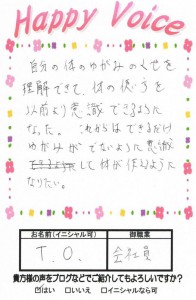 Happy Voice
自分の体のゆがみのくせを
理解できて、体の使う方を
以前より意識できるように
なった。これからはできるだけ
ゆがみがでないように意識
して体が作れるように
なりたい。
お名前(イニシャル可)
御職業
T.O.
会社員
貴方様の声をブログなどでご紹介してもよろしいですか?
☑はい □いいえ □イニシャルなら可